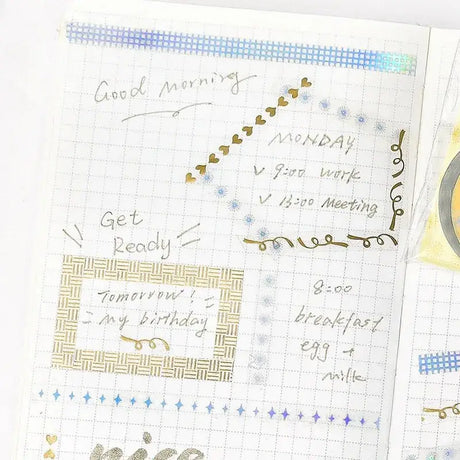 Good morning
MONDAY
v 9:00 work
v 13:00 Meeting
Get
Ready
Tomorrow!
my birthday
8:00
breakfast
egg +
milk
nice